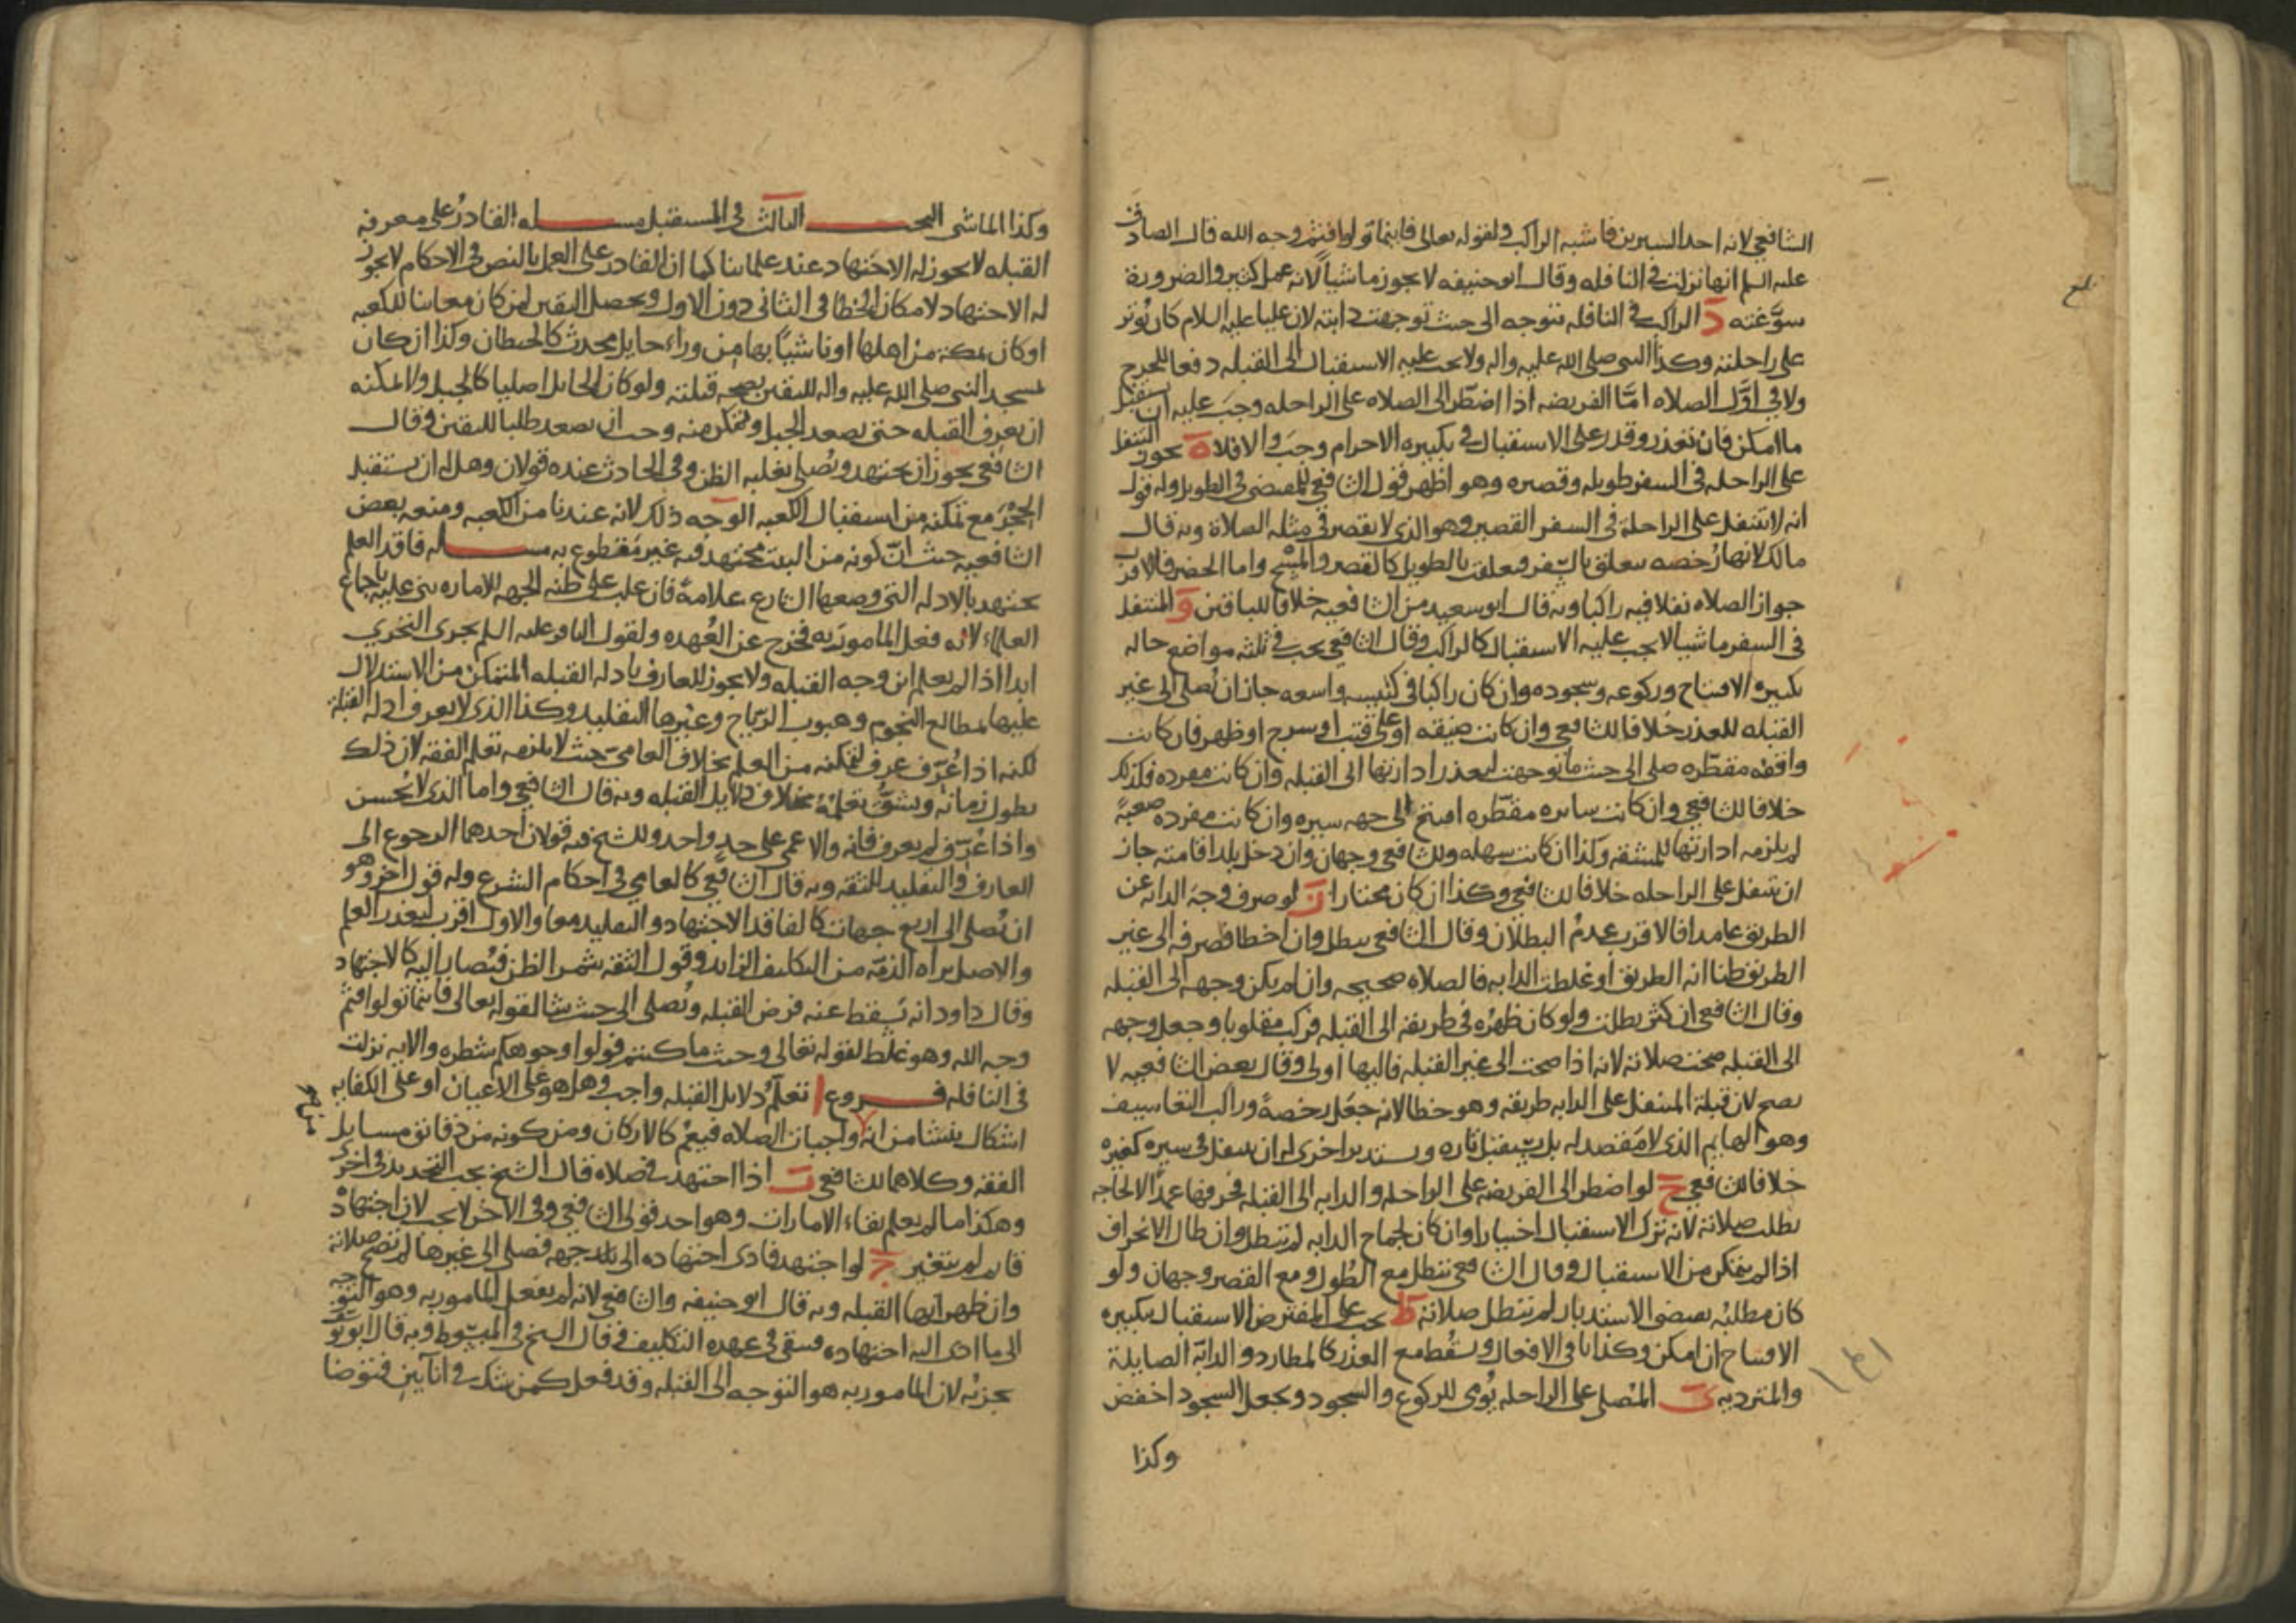 الشافعي لانه احد السيرين فاشبه الراكب ولقوله تعالى فاينما تولوا فثم وجه الله قال الصادق
عليه السلم انها نزلت في النافله وقال ابو حنيفه لا يجوز ماشياً لانه عمل كثير والضرورة
سوَّغته د الراكب في النافله يتوجه الى حيث توجهت دابته لان عليا عليه السلام كان يُوتر
على راحلته وكذا النبي صلى الله عليه واله ولا يجب عليه الاستقبال الى القبله دفعا للحرج
ولا في اوَّل الصلاه امَّا الفريضه اذا اضطر الى الصلاه على الراحله وجب عليه ان يستقبل
ما امكن فان تعذر وقدر على الاستقبال في تكبيره الاحرام وجب والا فلا ه يجوز التنفل
على الراحله في السفر طويله وقصيره وهو اظهر قول الشافعي للمقتضي في الطويل وله قول
انه لا يتنفل على الراحلة في السفر القصير وهو الذي لا يقصر في مثله الصلاة وبه قال
مالك لانها رُخصه تتعلق بالسفر فتعلقت بالطويل كالقصر والمسح واما الحضر فالاقرب
جواز الصلاه نفلا فيه راكبا وبه قال ابو سعيد من الشافعيه خلافا للباقين و المتنفل
في السفر ماشيا لا يجب عليه الاستقبال كالراكب وقال الشافعي يجب في ثلثه مواضع حاله
تكبير الافتتاح وركوعه وسجوده وان كان راكبا في كنيسه واسعه جاز ان يُصلي الى غير
القبله للعذر خلافا للشافعي وان كانت ضيقه او على قتب او سرج او ظهر فان كانت
واقفه مقطّره صلى الى حيث ما توجهت لتعذر ادارتها الى القبله وان كانت مفرده فكذلك
خلافا للشافعي وان كانت سايره مقطّره افتتح الى جهه سيره وان كانت مفرده صعبةً
لم يلزمه ادارتها للمشقه وكذا ان كانت سهله وللشافعي وجهان وان دخل بلد اقامته جاز
ان يتنفل على الراحله خلافا للشافعي وكذا ان كان مختارا ز لو صرف وجه الدابه عن
الطريق عامدا فالاقرب عدمُ البطلان وقال الشافعي يبطل وان اخطا فصرفه الى غير
الطريق ظنا انه الطريق او غلطت الدابه فالصلاه صحيحه وان لم يكن وجهه الى القبله
وقال الشافعي ان كثر بطلت ولو كان ظهره في طريقه الى القبله فركب مقلوبا وجعل وجهه
الى القبله صحت صلاته لانه اذا صحت الى غير القبله فاليها اولى وقال بعض الشافعيه لا
يصح لان قبلة المتنفل على الدابه طريقه وهو خطا لانه جعل رخصةً وراكب التعاسيف
وهو الهايم الذي لا مقصد له بل يستقبل تاره ويستدبر اخرى له ان يتنفل في سيره كغيره
خلافا للشافعي ح لو اضطر الى الفريضه على الراحله والدابه الى القبله فحرفها عمدًا لا لحاجه
بطلت صلاته لانه ترك الاستقبال اختيارا وان كان لجماح الدابه لم تبطل وان طال الانحراف
اذا لم يتمكن من الاستقبال وقال الشافعي تبطل مع الطُول ومع القصر وجهان ولو
كان مطلبُه يقتضي الاستدبار لم تبطل صلاته ط يجب على المفترض الاستقبال بتكبيره
الافتتاح ان امكن وكذا باقي الافعال ويسقط مع العذر كالمطارد والدابّة الصايلة
والمتردیه ى المُصلي على الراحله يُومي للركوع والسجود ويجعل السجود اخفض
وكذا
وكذا الماشي البحـــث الثالث في المستقبل مســـله القادرُ على معرفه
القبله لا يجوز له الاجتهاد عند علماينا كما ان القادر على العمل بالنص في الاحكام لا يجوز
له الاجتهاد لامكان الخطا في الثاني دون الاول ويحصل اليقين لمن كان معاينا للكعبه
او كان بمكه من اهلها او ناشياً بها من وراء حايل محدث كالحيطان وكذا ان كان
بمسجد النبي صلى الله عليه واله لليقين بصحه قبلته ولو كان الحايل اصليا كالجبل ولا يمكنه
ان يعرف القبله حتى يصعد الجبل ويتمكن منه وجب ان يصعد طلبا لليقين وقال
الشافعي يجوز ان يجتهد ويُصلي بغلبه الظن وفي الحادث عنده قولان وهل له ان يستقبل
الحِجْر مع تمكنه من استقبال الكعبه الوجه ذلك لانه عندنا من الكعبه ومنعه بعض
الشافعيه حيث ان كونه من البيت مجتهد فيه غير مقطوع به مســـله فاقد العلم
يجتهد بالادله التي وضعها الشارع علامةً فان غلب على ظنه الجهه للاماره بنى عليه باجماع
العلماء لانه فعل المامور به فخرج عن العُهده ولقول الباقر عليه السلم يجزى التحري
ابدا اذا لم يعلم اين وجه القبله ولا يجوز للعارف بادله القبله المتمكن من الاستدلال
عليها بمطالع النجوم وهبوب الرياح وغيرها التقليد وكذا الذي لا يعرف ادله القبلة
لكنه اذا عُرّف عرف لتمكنه من العلم بخلاف العامي حيث لا يلزمه تعلم الفقه لان ذلك
يطول زمانُه ويشقُّ تعلمُه بخلاف دلايل القبله وبه قال الشافعي واما الذي لا يُحسن
واذا عُرّف لم يعرف فانه والاعمى على حدٍ واحد وللشيخ فيه قولان احدهما الرجوع الى
العارف والتقليد للثقه وبه قال الشافعي كالعامي في احكام الشرع وله قول اخر وهو
ان يُصلي الى اربع جهات كالفاقد الاجتهاد والتقليد معا والاول اقرب لتعذر العلم
والاصل براه الذمّه من التكليف الزايد وقول الثقه يثمر الظن فيُصار اليه كالاجتهاد
وقال داود انه يَسقط عنه فرض القبله ويُصلي الى حيث شا لقوله تعالى فاينما تولوا فثم
وجه الله وهو غلط لقوله تعالى وحيث ما كنتم فولوا وجوهكم شطره والايه نزلت
في النافله فـــروع ا تعلّمُ دلايل القبله واجب وهل هو على الاعيان او على الكفايه
اشكال ينشا من انه واجبات الصلاه فيعُم كالاركان ومن كونه من دقايق مسايل
الفقه وكلاهما للشافعي ب اذا اجتهد في صلاه قال الشيخ يجب التجديد في اخرى
وهكذا ما لم يعلم بقاء الامارات وهو احد قولى الشافعي وفي الاخر لا يجب لان اجتهادَه
قايم لم يتغير ج لو اجتهد فادى اجتهاده الى جهه فصلى الى غيرها لم تصح صلاته
وان ظهر انها القبله وبه قال ابو حنيفه والشافعي لانه لم يفعل المامور به وهو التوجه
الى ما ادى اليه اجتهاده فيبقى في عهده التكليف وقال الشيخ في المبسوط وبه قال ابو يوسف
يجزئه لان المامور به هو التوجه الى القبله وقد فعل كمن شك في انآين فتوضا